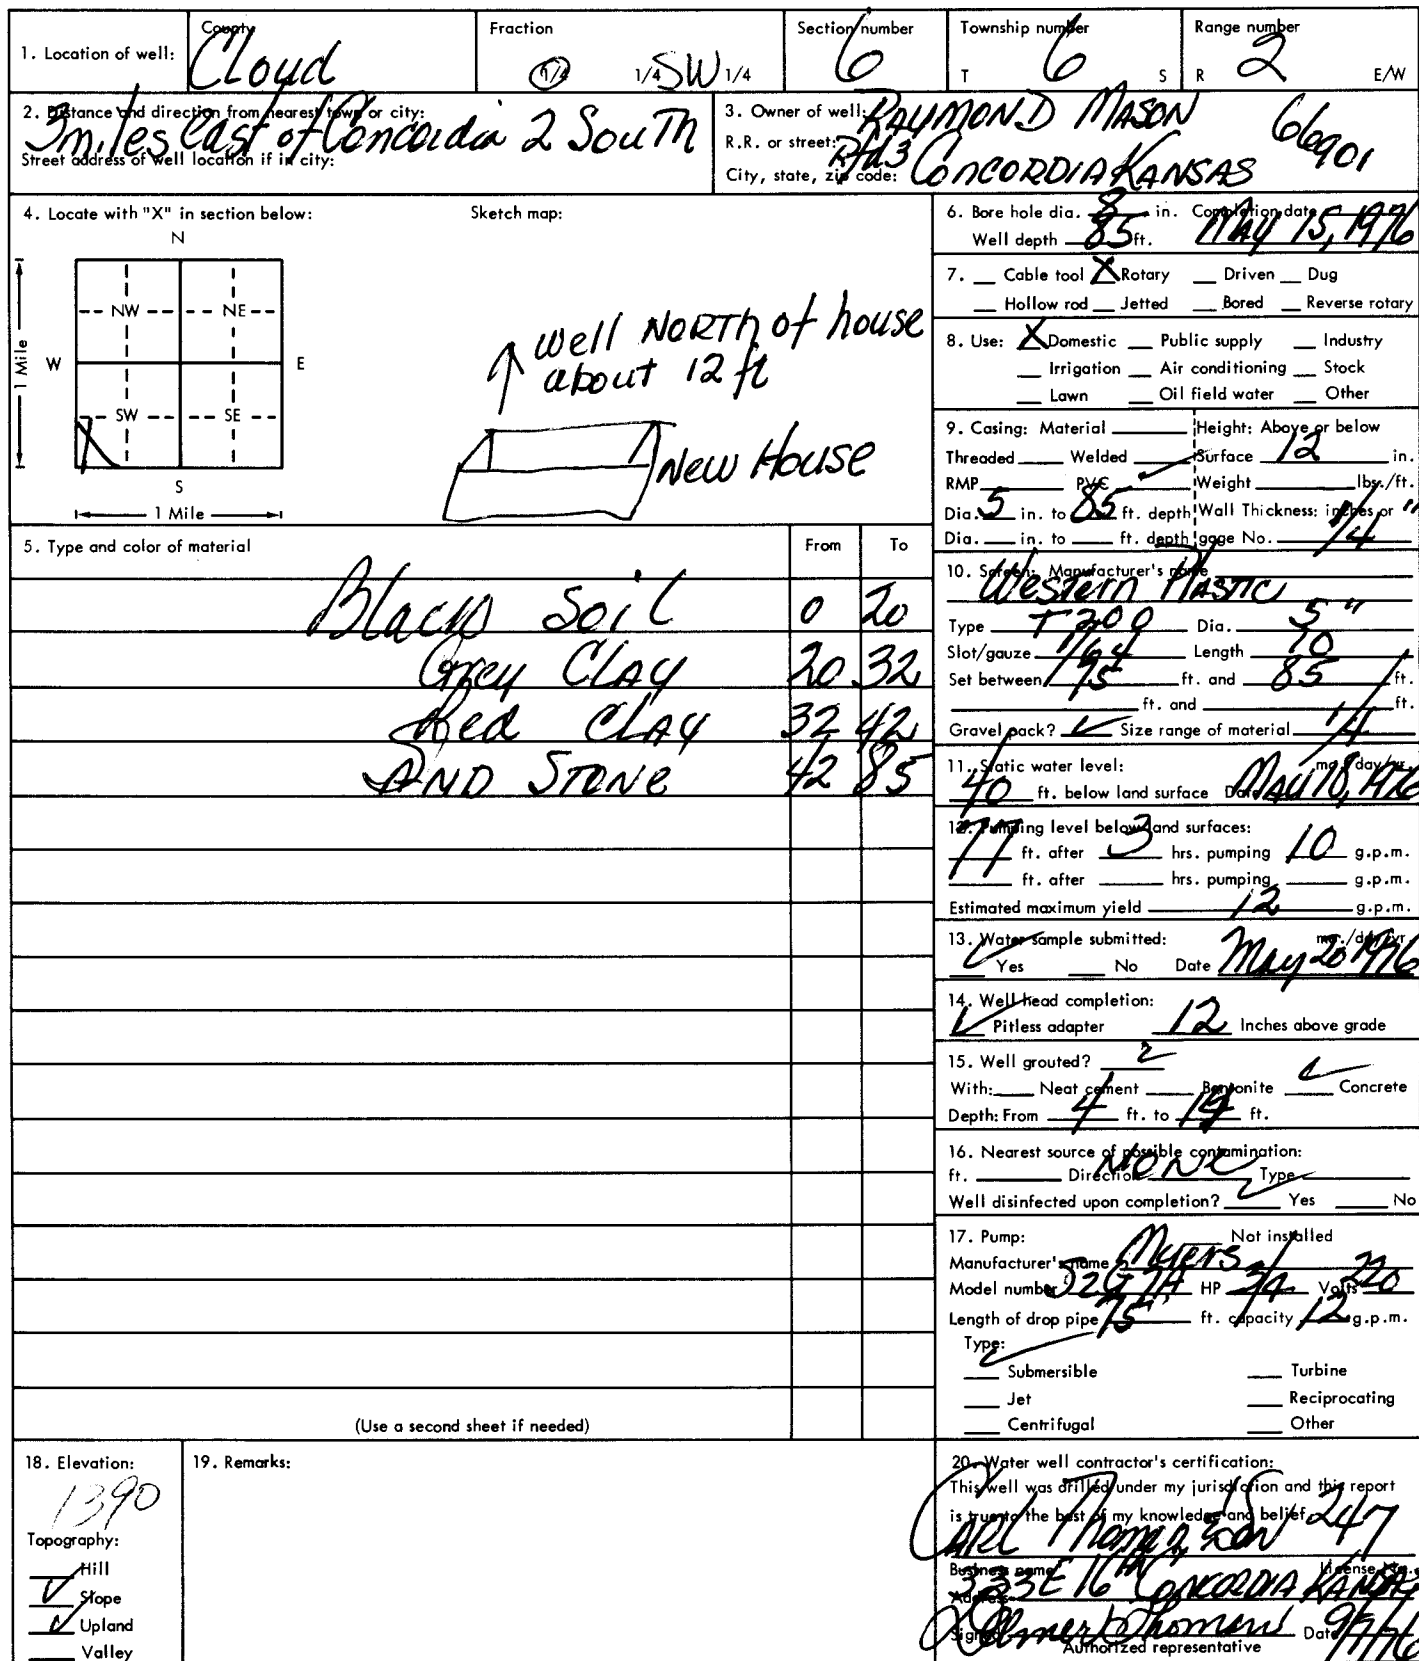 1. Location of well: County Cloud Fraction 1/4 1/4 SW 1/4 Section number 6 Township number T 6 S Range number R 2 E/W
2. Distance and direction from nearest town or city:
3miles East of Concordia 2 South
Street address of well location if in city:
3. Owner of well: RAYMOND MASON
R.R. or street: Rfd3 66901
City, state, zip code: CONCORDIA KANSAS
4. Locate with "X" in section below:
Sketch map:
N
NW NE
W E
1 Mile
SW SE
S
1 Mile
well NORTH of house
about 12 ft
New House
5. Type and color of material From To
Black Soil 0 20
Grey CLAY 20 32
Red CLAY 32 42
AND STONE 42 85
(Use a second sheet if needed)
6. Bore hole dia. 8 in. Completion date
Well depth 85 ft. MAY 15, 1976
7. Cable tool X Rotary Driven Dug
Hollow rod Jetted Bored Reverse rotary
8. Use: X Domestic Public supply Industry
Irrigation Air conditioning Stock
Lawn Oil field water Other
9. Casing: Material Height: Above or below
Threaded Welded Surface 12 in.
RMP PVC ✓ Weight lbs./ft.
Dia. 5 in. to 85 ft. depth Wall Thickness: inches or "
Dia. in. to ft. depth gage No. 1/4
10. Screen: Manufacturer's name
Western Plastic
Type T200 Dia. 5"
Slot/gauze 1/64 Length 10
Set between 75 ft. and 85 ft.
ft. and ft.
Gravel pack? ✓ Size range of material 1/4
11. Static water level: mo./day/yr.
40 ft. below land surface Date May 18, 1976
12. Pumping level below land surfaces:
77 ft. after 3 hrs. pumping 10 g.p.m.
ft. after hrs. pumping g.p.m.
Estimated maximum yield 12 g.p.m.
13. Water sample submitted: mo./day/yr
✓ Yes No Date May 20 1976
14. Well head completion:
✓ Pitless adapter 12 Inches above grade
15. Well grouted?
With: Neat cement Bentonite ✓ Concrete
Depth: From 4 ft. to 14 ft.
16. Nearest source of possible contamination:
ft. Direction NONE Type
Well disinfected upon completion? ✓ Yes No
17. Pump: Not installed
Manufacturer's name Myers
Model number S2G7A HP 3/4 Volts 220
Length of drop pipe 75 ft. capacity 12 g.p.m.
Type:
✓ Submersible Turbine
Jet Reciprocating
Centrifugal Other
18. Elevation:
1390
Topography:
Hill
✓ Slope
✓ Upland
Valley
19. Remarks:
20. Water well contractor's certification:
This well was drilled under my jurisdiction and this report
is true to the best of my knowledge and belief.
CARL 247
Business name License No.
333 E 16th CONCORDIA KANSAS
Address
Signed Date 9/7/76
Authorized representative